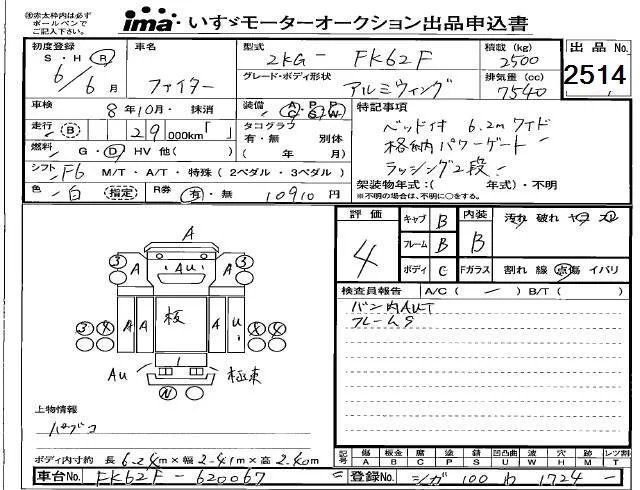 ※赤太枠内は必ずボールペンでご記入下さい。
ima いすゞモーターオークション出品申込書
初度登録 S・H・R 6/6月
車名 ファイター
型式 2KG- FK62F
グレード・ボディ形状 アルミウィング
積載(kg) 2500
排気量(cc) 7540
出品No. 2514
車検 8年10月・抹消
装備 A/C P/S P/W
走行 B 29 000km「 」
タコグラフ 有・無 別体 ( 年 月)
燃料 G・D・HV 他( )
シフト F6 M/T・A/T・特殊(2ペダル・3ペダル)
色 白 (指定)
R券 有・無 10910円
特記事項
ベッド付 6.2mワイド
格納パワーゲート
ラッシング2段
架装物年式:( 年式)・不明
※不明の場合は、不明に○をする。
評価 4
キャブ B
フレーム B
ボディ C
内装 B
Fガラス
汚れ 破れ ヤコ
割れ 線 点傷 イバリ
検査員報告 A/C( ) B/T( )
バン内AUT
フレームS
A
3 A Au A 3
A A 板 A
4 4
Au
N
上物情報
パブコ
ボディ内寸約 長 6.24m×幅 2.41m×高 2.40m
記号 傷A 板金B 腐C 塗P 錆S 凹凸曲U 波W 穴H 跡M レツ割T
車台No. FK62F-620067
登録No. シガ 100 わ 1724